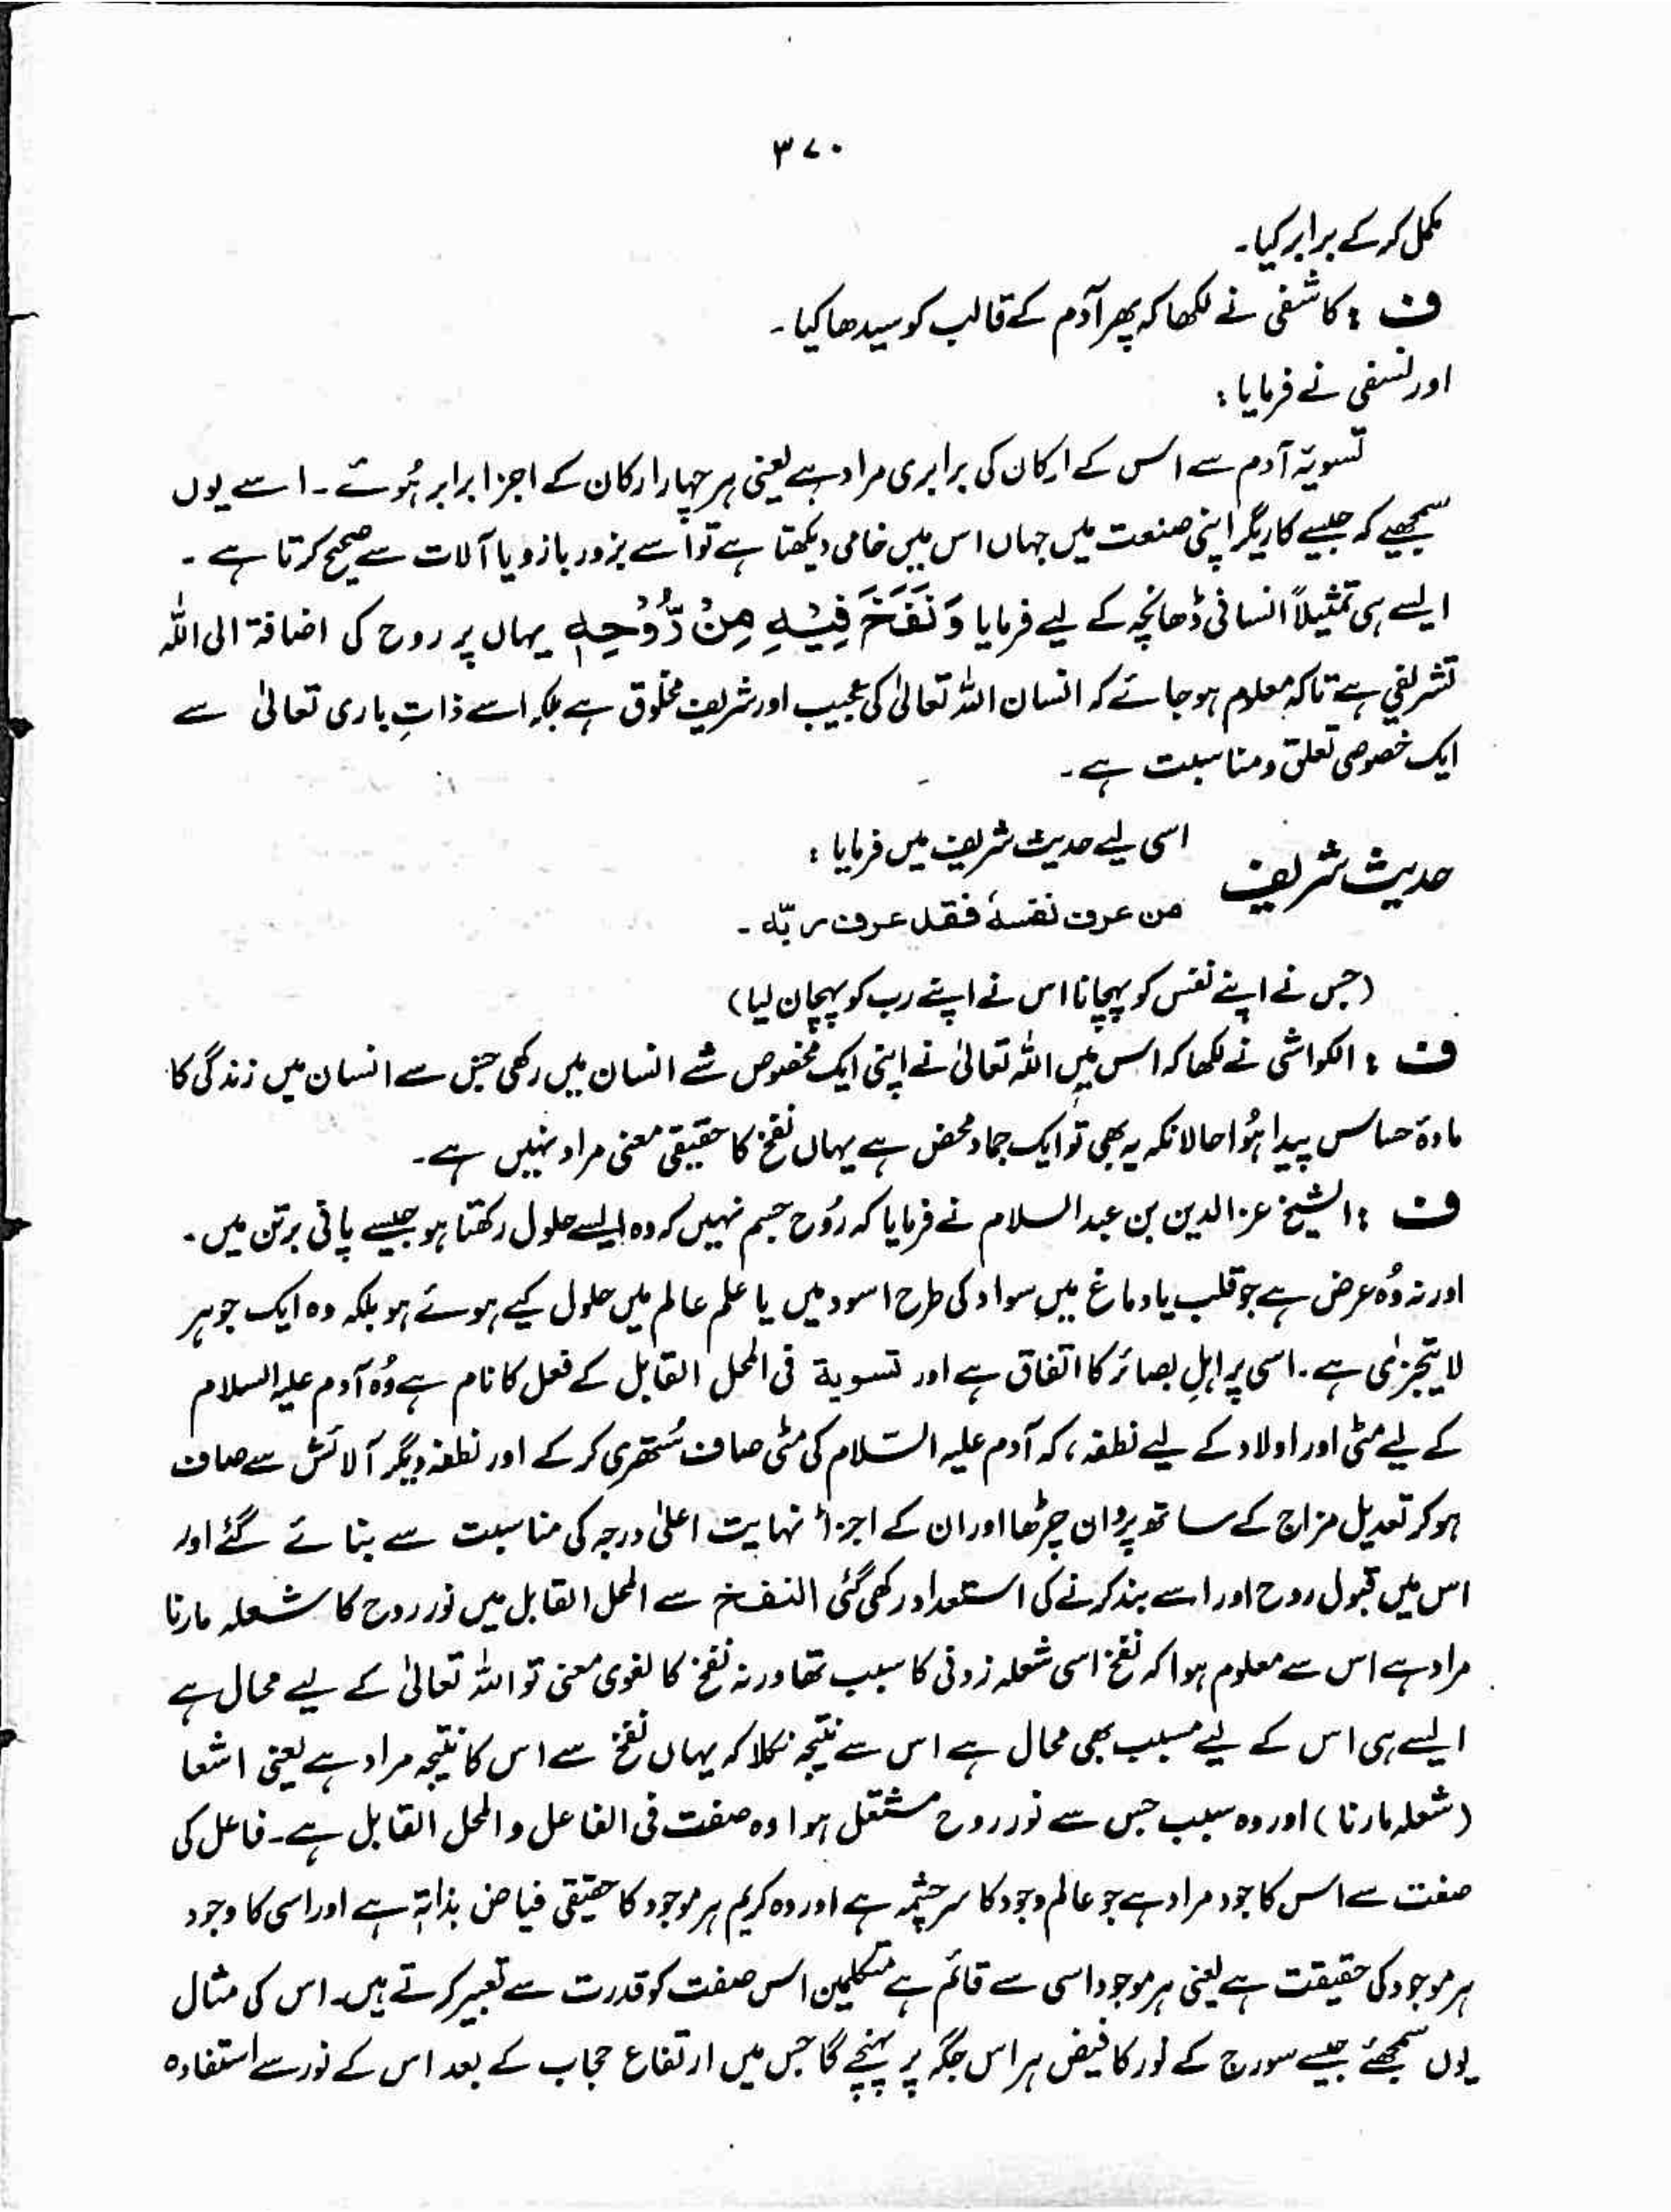 ۳۷۰
مکمل کر کے برابر کیا۔
ف : کاشفی نے لکھا کہ پھر آدم کے قالب کو سیدھا کیا۔
اور نسفی نے فرمایا :
تسویۂ آدم سے اس کے ارکان کی برابری مراد ہے یعنی ہر چہار ارکان کے اجزا برابر ہُوئے۔ اسے یوں
سمجھیے کہ جیسے کاریگر اپنی صنعت میں جہاں اس میں خامی دیکھتا ہے تو اُسے بزور بازو یا آلات سے صحیح کرتا ہے۔
ایسے ہی تمثیلاً انسانی ڈھانچہ کے لیے فرمایا وَنَفَخَ فِیْہِ مِنْ رُّوْحِہٖ یہاں پر روح کی اضافۃ الی اللہ
تشریفی ہے تاکہ معلوم ہو جائے کہ انسان اللہ تعالیٰ کی عجیب اور شریف مخلوق ہے بلکہ اسے ذاتِ باری تعالیٰ سے
ایک خصوصی تعلق و مناسبت ہے۔
حدیث شریف اسی لیے حدیث شریف میں فرمایا :
من عرف نفسہٗ فقد عرف ربّہ۔
(جس نے اپنے نفس کو پہچانا اس نے اپنے رب کو پہچان لیا)
ف : الکواشی نے لکھا کہ اس میں اللہ تعالیٰ نے اپنی ایک مخصوص شے انسان میں رکھی جس سے انسان میں زندگی کا
مادۂ حساس پیدا ہُوا حالانکہ یہ بھی تو ایک جماد محض ہے یہاں نفخ کا حقیقی معنی مراد نہیں ہے۔
ف : الشیخ عز الدین بن عبد السلام نے فرمایا کہ رُوح جسم نہیں کہ وہ ایسے حلول رکھتا ہو جیسے پانی برتن میں۔
اور نہ وُہ عرض ہے جو قلب یا دماغ میں سواد کی طرح اسود میں یا علم عالم میں حلول کیے ہوئے ہو بلکہ وہ ایک جوہر
لا یتجزیٰ ہے۔ اسی پر اہلِ بصائر کا اتفاق ہے اور تسویۃ فی المحل القابل کے فعل کا نام ہے وُہ آدم علیہ السلام
کے لیے مٹی اور اولاد کے لیے نطفہ، کہ آدم علیہ السّلام کی مٹی صاف سُتھری کر کے اور نطفہ دیگر آلائش سے صاف
ہو کر تعدیل مزاج کے ساتھ پروان چڑھا اور ان کے اجزاء نہایت اعلیٰ درجہ کی مناسبت سے بنائے گئے اور
اس میں قبول روح اور اسے بند کرنے کی استعداد رکھی گئی النفخ سے المحل القابل میں نور روح کا شعلہ مارنا
مراد ہے اس سے معلوم ہوا کہ نفخ اسی شعلہ زونی کا سبب تھا ورنہ نفخ کا لغوی معنی تو اللہ تعالیٰ کے لیے محال ہے
ایسے ہی اس کے لیے مسبب بھی محال ہے اس سے نتیجہ نکلا کہ یہاں نفخ سے اس کا نتیجہ مراد ہے یعنی اشعا
(شعلہ مارنا) اور وہ سبب جس سے نور روح مشتعل ہوا وہ صفت فی الفاعل و المحل القابل ہے۔ فاعل کی
صفت سے اس کا جود مراد ہے جو عالم وجود کا سرچشمہ ہے اور وہ کریم ہر موجود کا حقیقی فیاض بذاتہٖ ہے اور اسی کا وجود
ہر موجود کی حقیقت ہے یعنی ہر موجود اسی سے قائم ہے متکلمین اس صفت کو قدرت سے تعبیر کرتے ہیں۔ اس کی مثال
یوں سمجھئے جیسے سورج کے نور کا فیض ہر اس جگہ پر پہنچے گا جس میں ارتفاع حجاب کے بعد اس کے نور سے استفادہ